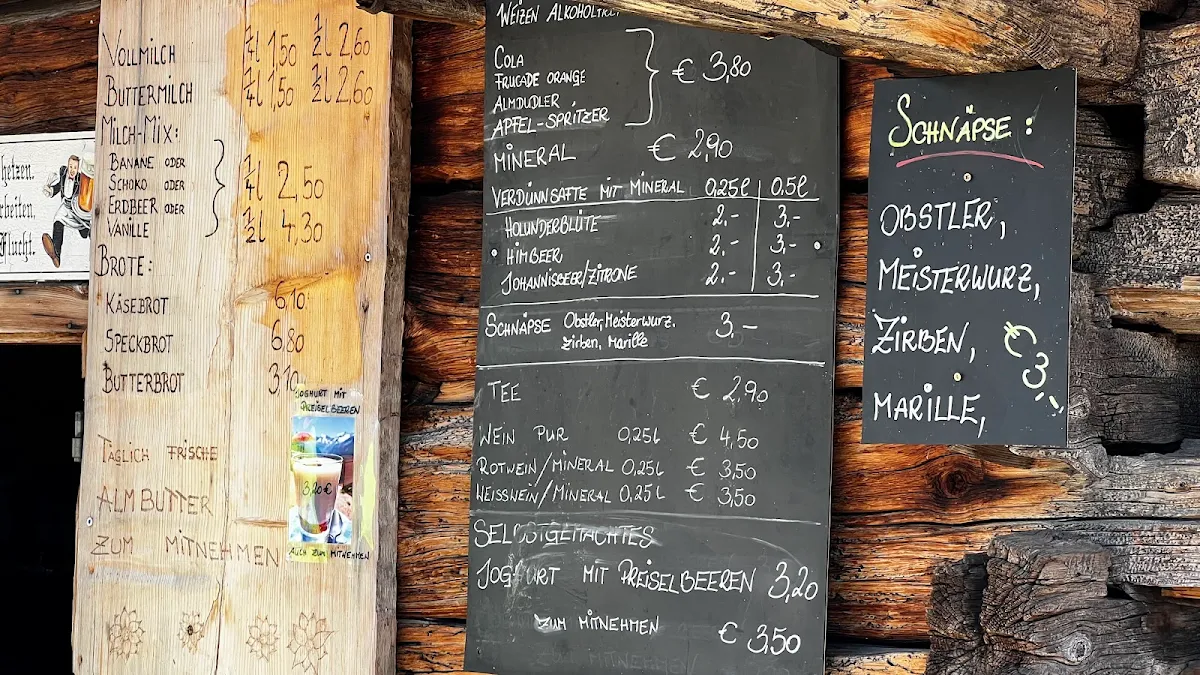 VOLLMILCH ¼l 1,50 ½l 2,60
BUTTERMILCH ¼l 1,50 ½l 2,60
MILCH-MIX:
BANANE ODER
SCHOKO ODER ¼l 2,50
ERDBEER ODER ½l 4,30
VANILLE
BROTE:
KÄSEBROT 6,10
SPECKBROT 6,80
BUTTERBROT 3,10
TÄGLICH FRISCHE
ALMBUTTER
ZUM MITNEHMEN
JOGHURT MIT
PREISELBEEREN
3,20 €
AUCH ZUM MITNEHMEN
hetzen.
rbeiten,
Flucht.
WEIZEN ALKOHOLFREI
COLA
FRUCADE ORANGE € 3,80
ALMDUDLER
APFEL-SPRITZER
MINERAL € 2,90
VERDÜNNSÄFTE MIT MINERAL 0,25l 0,5l
HOLUNDERBLÜTE 2,- 3,-
HIMBEER 2,- 3,-
JOHANNISBEER/ZITRONE 2,- 3,-
SCHNÄPSE Obstler, Meisterwurz, 3,-
Zirben, Marille
TEE € 2,90
WEIN PUR 0,25l € 4,50
ROTWEIN/MINERAL 0,25l € 3,50
WEISSWEIN/MINERAL 0,25l € 3,50
SELBSTGEMACHTES
JOGHURT MIT PREISELBEEREN 3,20
ZUM MITNEHMEN € 3,50
SCHNÄPSE:
OBSTLER,
MEISTERWURZ,
ZIRBEN, € 3,-
MARILLE,